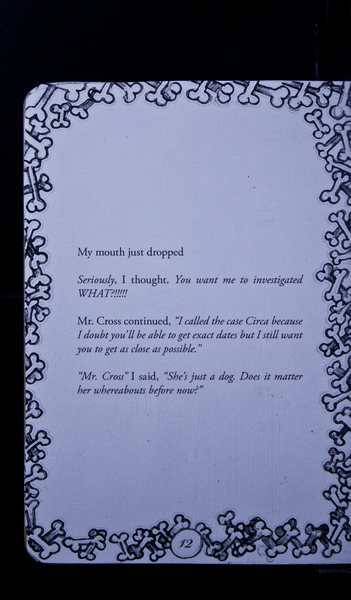 My mouth just dropped
Seriously, I thought. You want me to investigated
WHAT?!!!!!
Mr. Cross continued, “I called the case Circa because
I doubt you’ll be able to get exact dates but I still want
you to get as close as possible.”
“Mr. Cross” I said, “She’s just a dog. Does it matter
her whereabouts before now?”
12